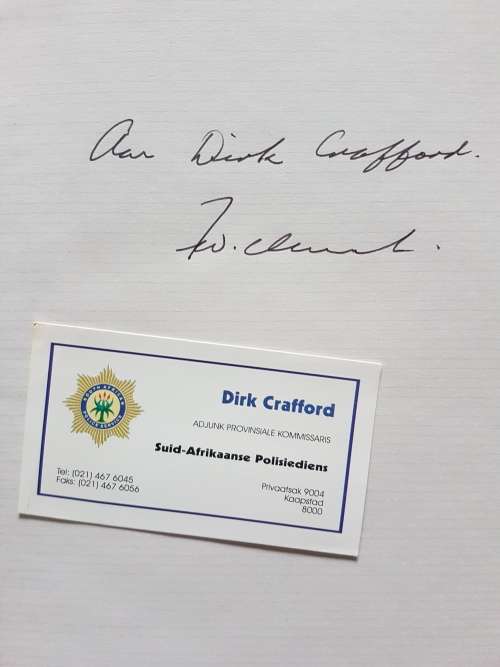 Aan Dirk Crafford.
SOUTH AFRICAN
POLICE SERVICE
Dirk Crafford
ADJUNK PROVINSIALE KOMMISSARIS
Suid-Afrikaanse Polisiediens
Tel: (021) 467 6045
Faks: (021) 467 6056
Privaatsak 9004
Kaapstad
8000